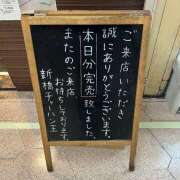 ご来店いただき
誠にありがとうございます。
本日分完売致しました。
またのご来店
お待ちしております。
新橋チャーハン王